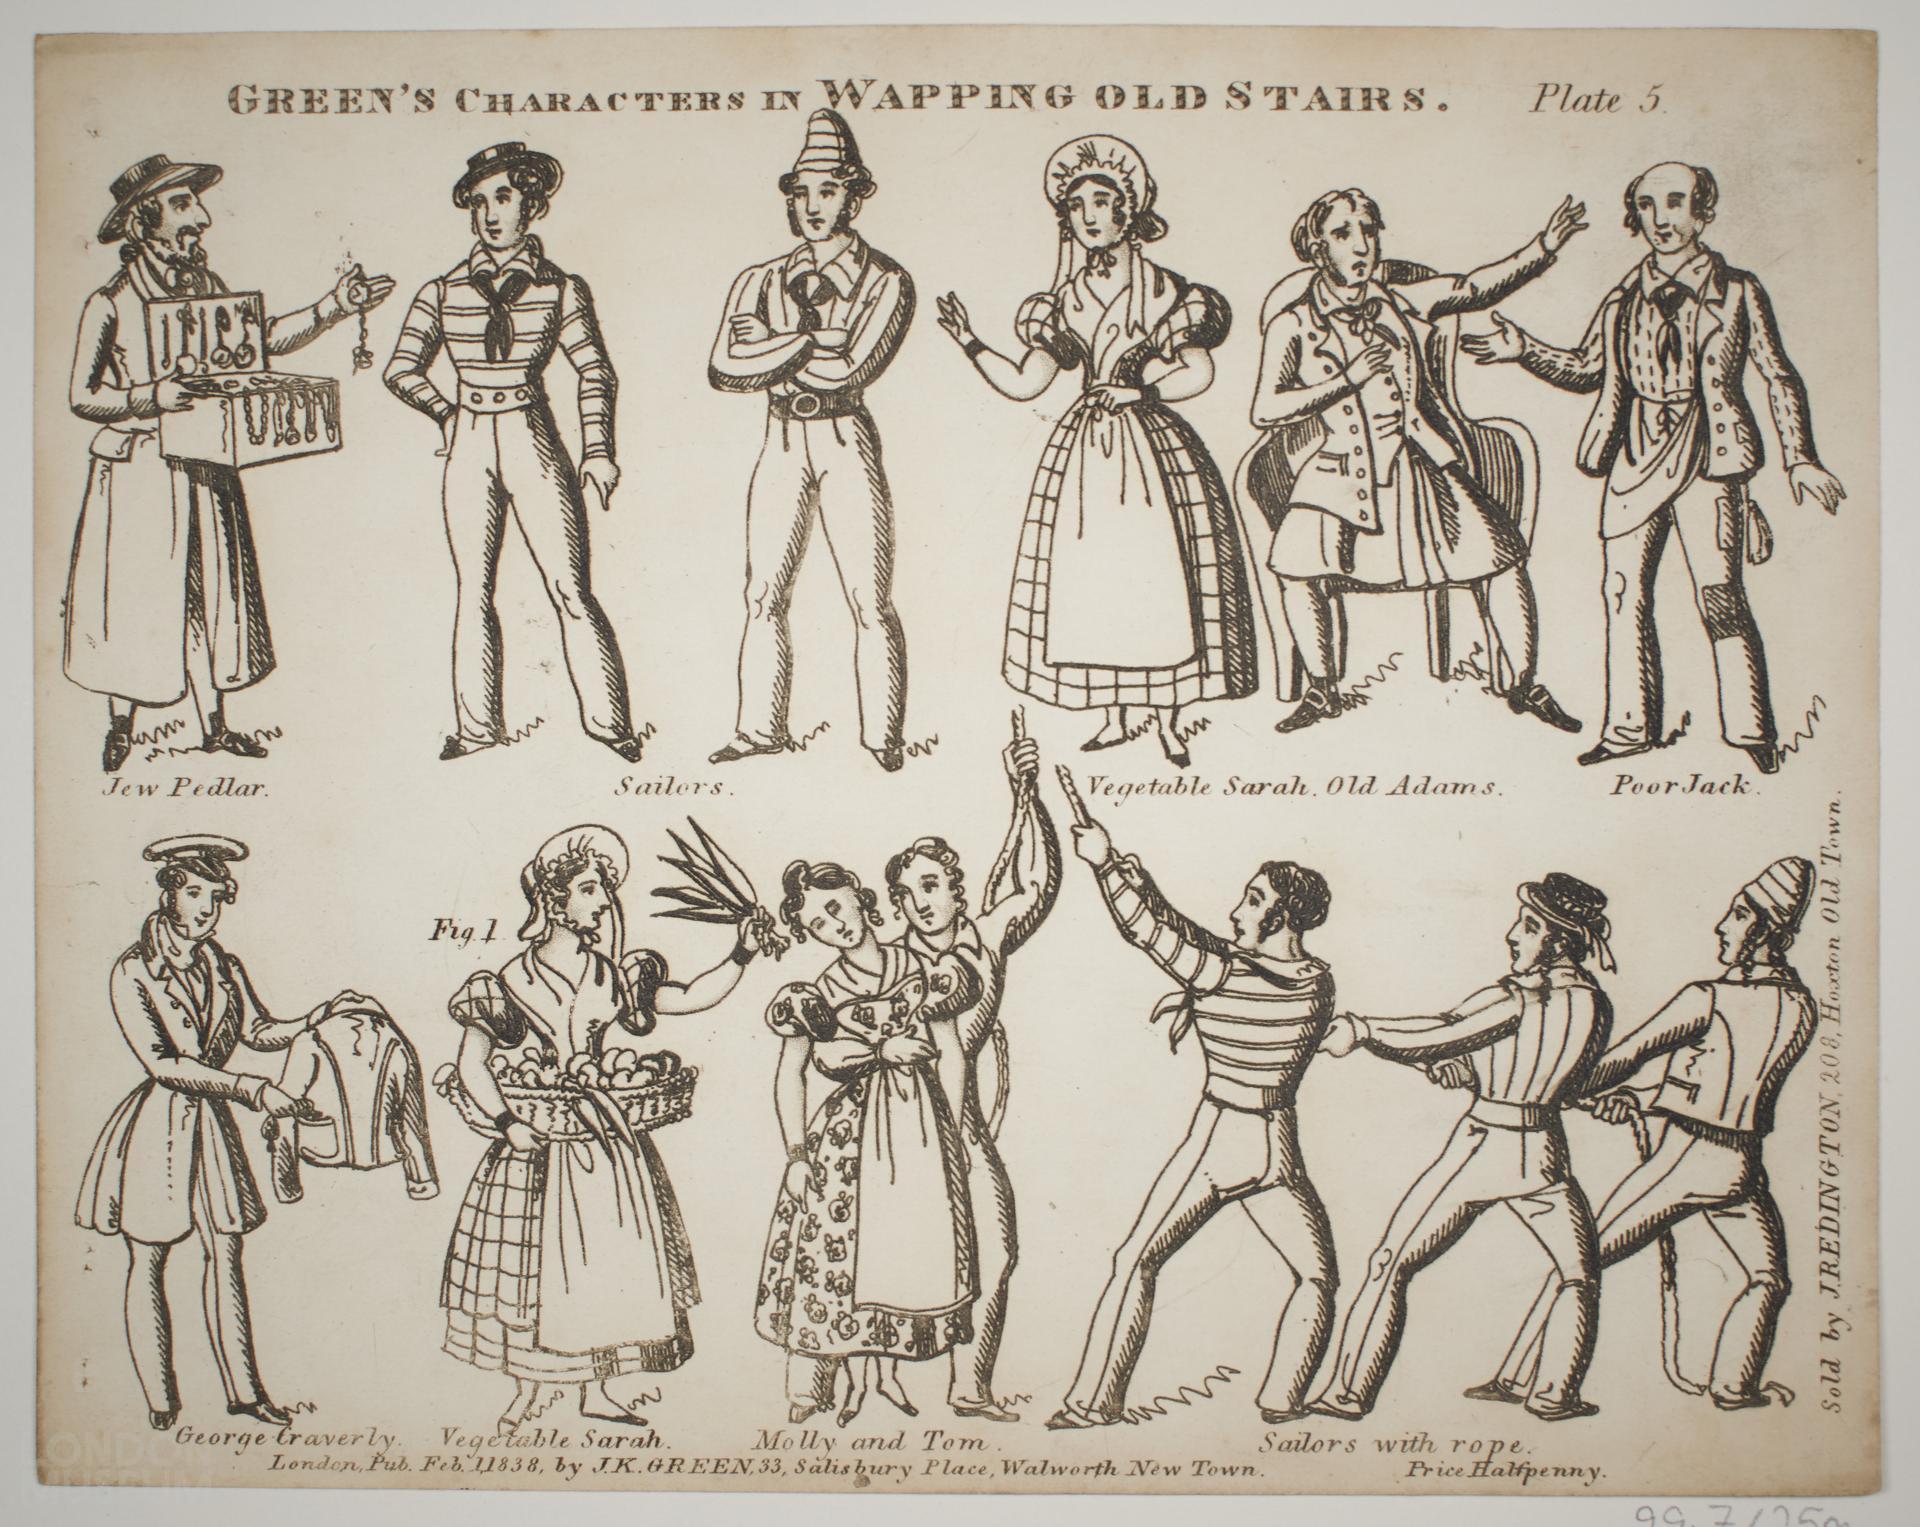 GREEN'S CHARACTERS IN WAPPING OLD STAIRS. Plate 5.
Jew Pedlar. Sailors. Vegetable Sarah. Old Adams. Poor Jack.
Fig. 1.
George Craverly. Vegetable Sarah. Molly and Tom. Sailors with rope.
London, Pub. Feb. 1, 1838, by J.K. GREEN, 33, Salisbury Place, Walworth New Town. Price Halfpenny.
Sold by J. REDINGTON, 208, Hoxton Old Town.